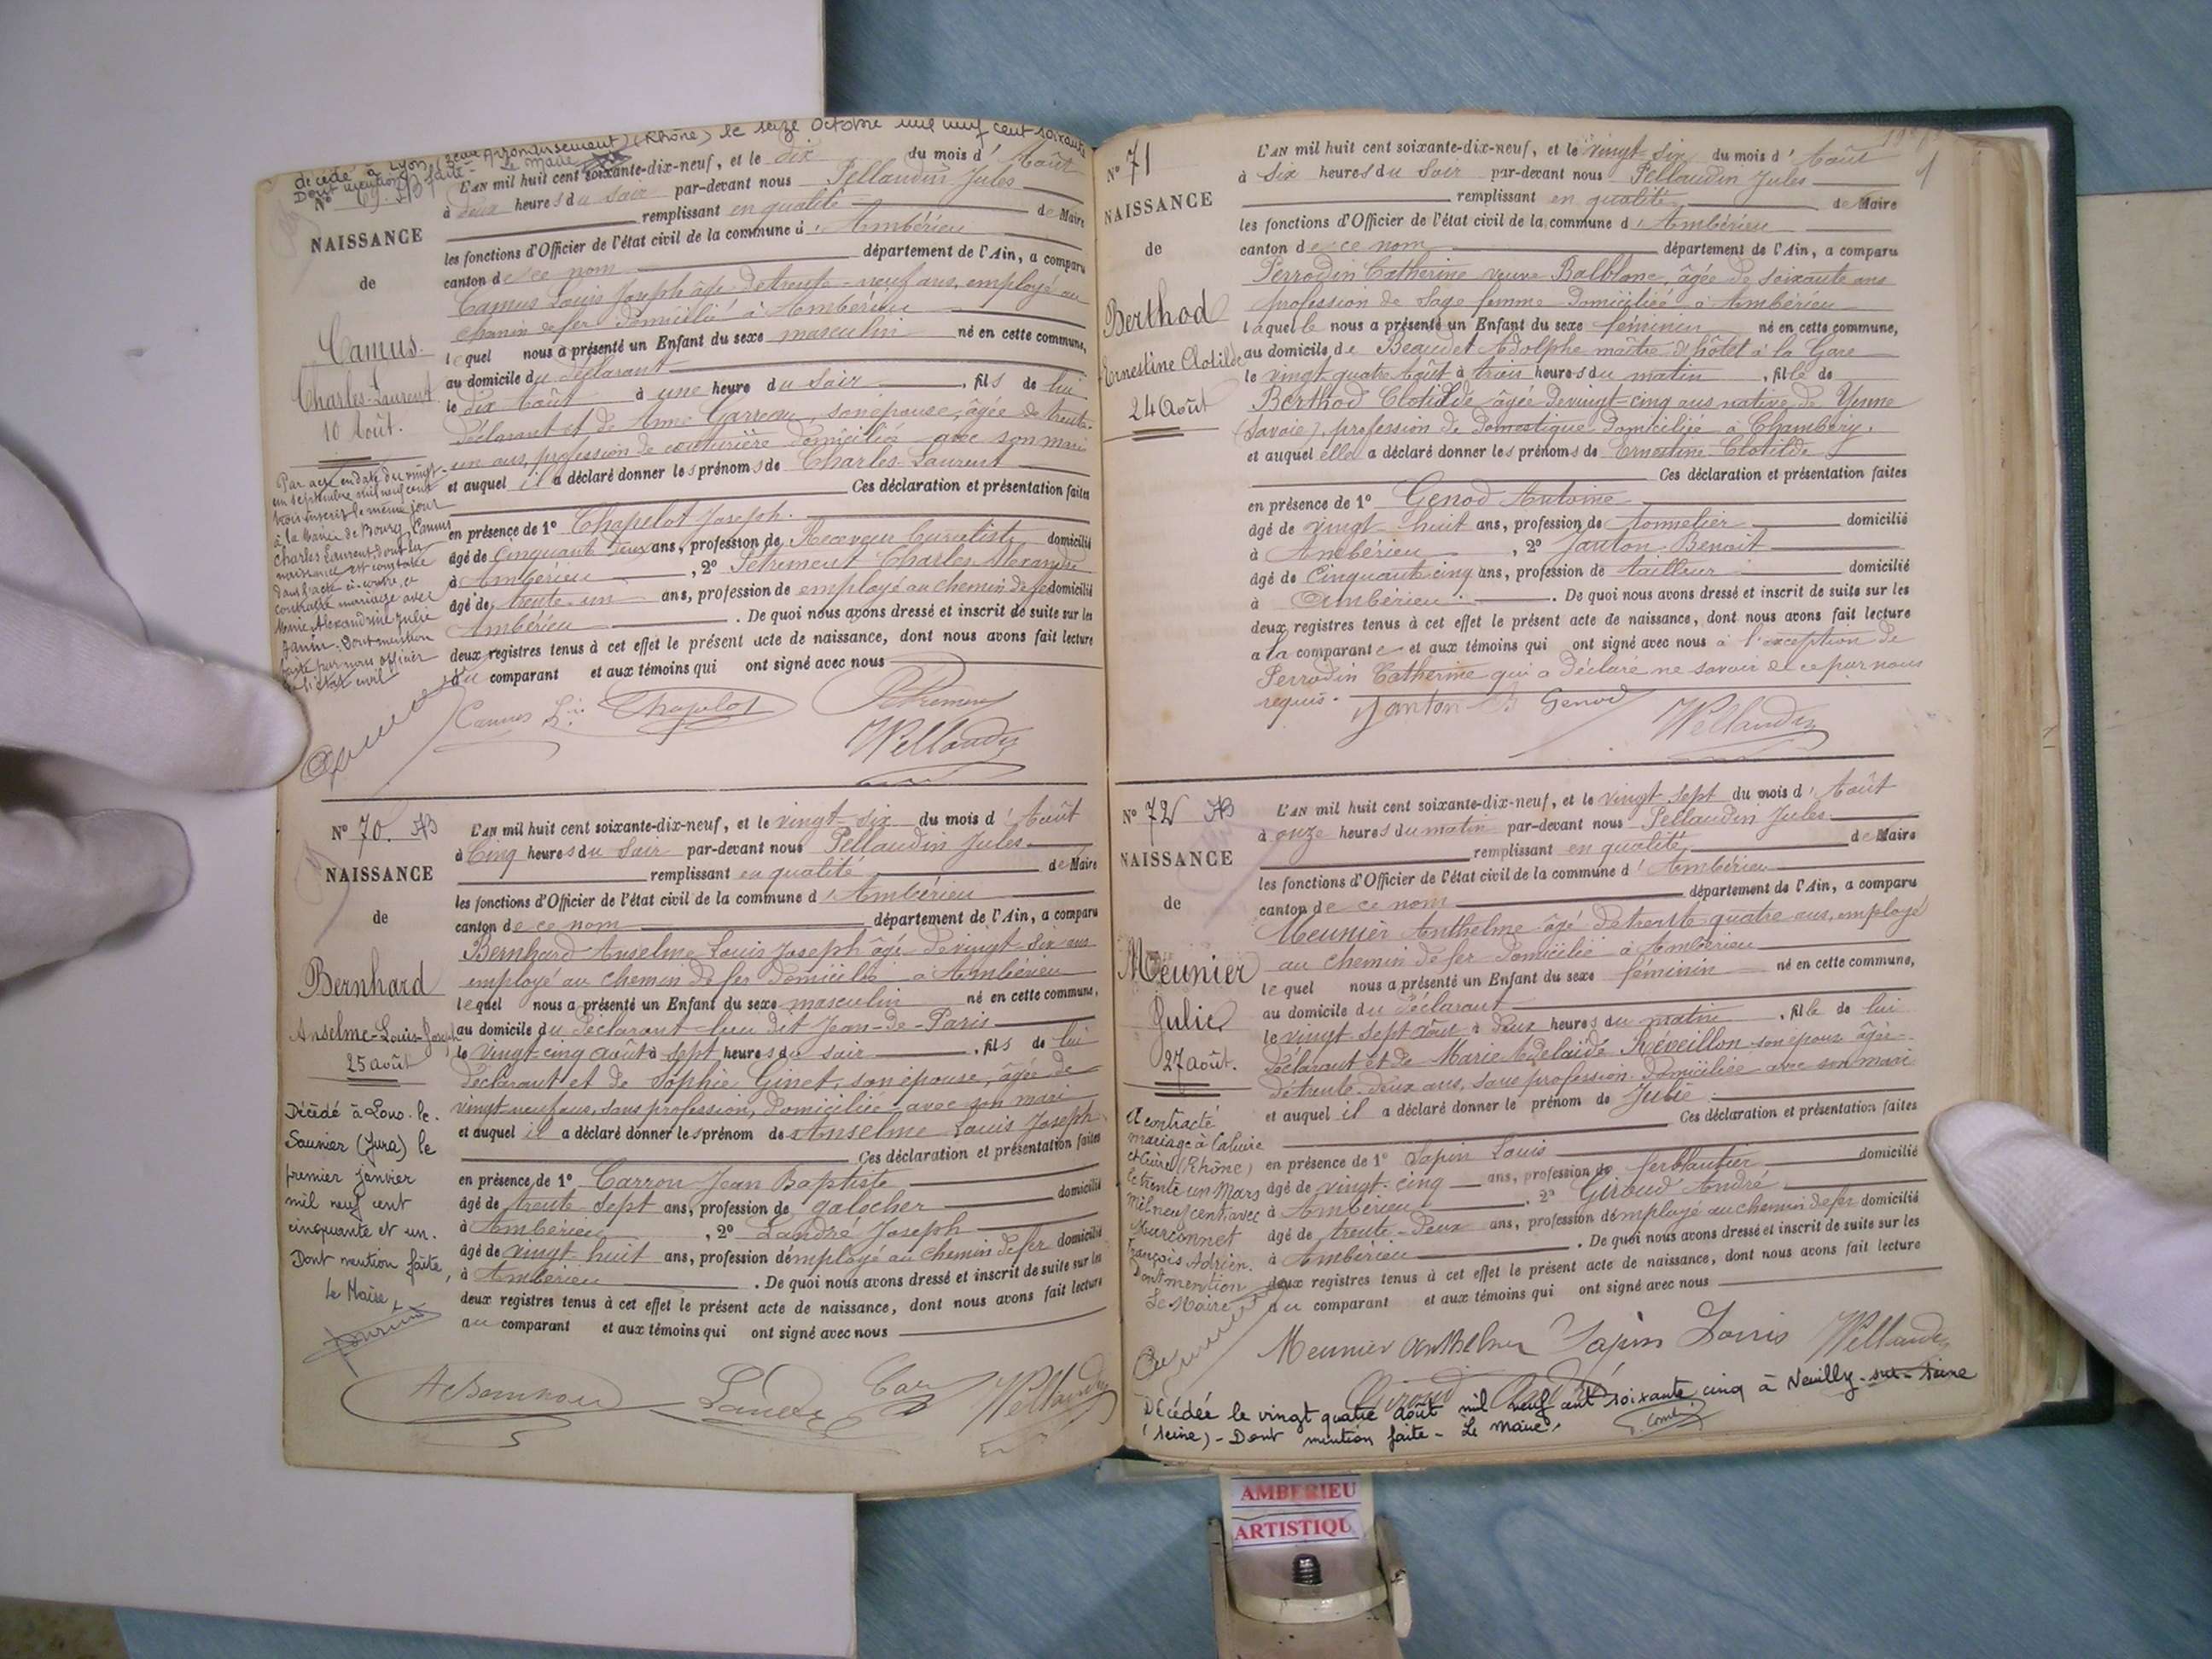 décédé à Lyon (3eme Arrondissement) (Rhône) le seize Octobre mil neuf cent soixante
Dont mention faite - Le Maire
N° 69. AB
NAISSANCE
de
Camus
Charles-Laurent
10 Août.
Par acte en date du vingt-
un septembre mil neuf cent
trois inscrit le même jour
à la Mairie de Bourg, Camus
Charles Laurent, dont la
naissance est constatée
dans l'acte ci-contre, a
contracté mariage avec
Marie Alexandrine Julie
Janin. Dont mention
faite par nous officier
de l'état civil
L'AN mil huit cent soixante-dix-neuf, et le Dix du mois d'Août
à deux heures du soir par-devant nous Pellaudin Jules
remplissant en qualité de Maire
les fonctions d'Officier de l'état civil de la commune d'Ambérieu
canton de ce nom département de l'Ain, a comparu
Camus Louis Joseph âgé de trente-neuf ans, employé au
chemin de fer domicilié à Ambérieu
lequel nous a présenté un Enfant du sexe masculin né en cette commune,
au domicile du déclarant
le dix Août à une heure du soir, fils de lui
déclarant et de Anne Garreau, son épouse, âgée de trente-
un ans, profession de couturière domiciliée avec son mari
et auquel il a déclaré donner les prénoms de Charles-Laurent
Ces déclaration et présentation faites
en présence de 1° Chapelot Joseph.
âgé de cinquante deux ans, profession de Receveur buraliste domicilié
à Ambérieu, 2° Petrement Charles Alexandre
âgé de trente-un ans, profession de employé au chemin de fer domicilié
Ambérieu. De quoi nous avons dressé et inscrit de suite sur les
deux registres tenus à cet effet le présent acte de naissance, dont nous avons fait lecture
au comparant et aux témoins qui ont signé avec nous
Camus Chapelot Petrement
Pellaudin
N° 70. AB
NAISSANCE
de
Bernhard
Anselme-Louis-Joseph
25 août
Décédé à Lons-le-
Saunier (Jura) le
premier janvier
mil neuf cent
cinquante et un.
Dont mention faite,
Le Maire,
L'AN mil huit cent soixante-dix-neuf, et le vingt-six du mois d'Août
à Cinq heures du soir par-devant nous Pellaudin Jules
remplissant en qualité de Maire
les fonctions d'Officier de l'état civil de la commune d'Ambérieu
canton de ce nom département de l'Ain, a comparu
Bernhard Anselme Louis Joseph âgé de vingt-six ans
employé au chemin de fer domicilié à Ambérieu
lequel nous a présenté un Enfant du sexe masculin né en cette commune,
au domicile du déclarant lieu dit Jean-De-Paris
le vingt-cinq août à sept heures du soir, fils de lui
déclarant et de Sophie Ginet, son épouse, âgée de
vingt-neuf ans, sans profession, domiciliée avec son mari
et auquel il a déclaré donner les prénom de Anselme Louis Joseph
Ces déclaration et présentation faites
en présence de 1° Carron Jean Baptiste
âgé de trente sept ans, profession de galocher domicilié
à Ambérieu, 2° Landré Joseph
âgé de vingt-huit ans, profession d'employé au chemin de fer domicilié
à Ambérieu. De quoi nous avons dressé et inscrit de suite sur les
deux registres tenus à cet effet le présent acte de naissance, dont nous avons fait lecture
au comparant et aux témoins qui ont signé avec nous
Landré Pellaudin
N° 71
NAISSANCE
de
Berthod
Ernestine Clotilde
24 Août
L'AN mil huit cent soixante-dix-neuf, et le vingt-six du mois d'Août
à six heures du soir par-devant nous Pellaudin Jules
remplissant en qualité de Maire
les fonctions d'Officier de l'état civil de la commune d'Ambérieu
canton de ce nom département de l'Ain, a comparu
Perrodin Catherine veuve Balblanc, âgée de soixante ans
profession de Sage femme domiciliée à Ambérieu
laquelle nous a présenté un Enfant du sexe féminin né en cette commune,
au domicile de Beaudet Adolphe maître d'hôtel à la Gare
le vingt-quatre Août à trois heures du matin, fille de
Berthod Clotilde âgée de vingt-cinq ans native de Yenne
(Savoie), profession de domestique domiciliée à Chambéry.
et auquel elle a déclaré donner les prénoms de Ernestine Clotilde
Ces déclaration et présentation faites
en présence de 1° Genod Antoine
âgé de vingt-huit ans, profession de tonnelier domicilié
à Ambérieu, 2° Janton Benoit
âgé de Cinquante cinq ans, profession de tailleur domicilié
à Ambérieu. De quoi nous avons dressé et inscrit de suite sur les
deux registres tenus à cet effet le présent acte de naissance, dont nous avons fait lecture
a la comparante et aux témoins qui ont signé avec nous à l'exception de
Perrodin Catherine qui a déclaré ne savoir de ce par nous
requis.
Janton B Genod Pellaudin
N° 72 AB
NAISSANCE
de
Meunier
Julie
27 août.
A contracté
mariage à Caluire
et Cuire (Rhône)
le trente un Mars
mil neuf cent avec
Murconnet
François Adrien.
Dont mention
Le Maire
L'AN mil huit cent soixante-dix-neuf, et le vingt sept du mois d'Août
à onze heures du matin par-devant nous Pellaudin Jules
remplissant en qualité de Maire
les fonctions d'Officier de l'état civil de la commune d'Ambérieu
canton de ce nom département de l'Ain, a comparu
Meunier Anthelme âgé de trente quatre ans, employé
au chemin de fer domicilié à Ambérieu
lequel nous a présenté un Enfant du sexe féminin né en cette commune,
au domicile du déclarant
le vingt-sept août à deux heures du matin, fille de lui
déclarant et de Marie Adelaïde Réveillon son épouse âgée
de trente-deux ans, sans profession domiciliée avec son mari
et auquel il a déclaré donner le prénom de Julie
Ces déclaration et présentation faites
en présence de 1° Sapin Louis
âgé de vingt-cinq ans, profession de ferblantier domicilié
à Ambérieu, 2° Giroud André
âgé de trente-deux ans, profession d'employé au chemin de fer domicilié
à Ambérieu. De quoi nous avons dressé et inscrit de suite sur les
deux registres tenus à cet effet le présent acte de naissance, dont nous avons fait lecture
au comparant et aux témoins qui ont signé avec nous
Meunier Anthelme Sapin Louis Pellaudin
Giroud André
Décédée le vingt quatre Août mil neuf cent soixante cinq à Neuilly-sur-Seine
(Seine) - Dont mention faite - Le Maire,
AMBERIEU
ARTISTIQU